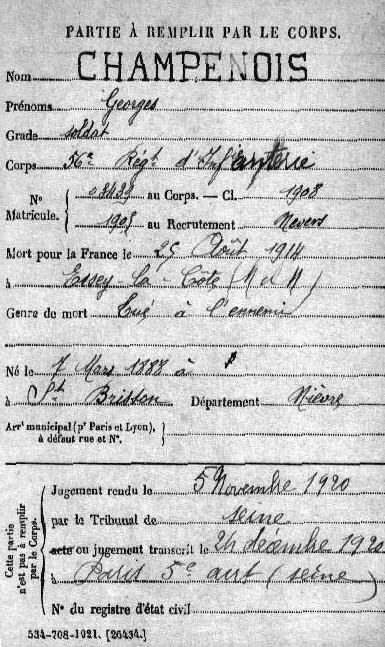 PARTIE À REMPLIR PAR LE CORPS.
Nom CHAMPENOIS
Prénoms Georges
Grade soldat
Corps 56e Régt d'Infanterie
N° Matricule. { 08499 au Corps. — Cl. 1908
1905 au Recrutement Nevers
Mort pour la France le 25 Août 1914
à Essey-la-Côte (M et M)
Genre de mort Tué à l'ennemi
Né le 7 Mars 1888 à
à St Brisson Département Nièvre
Arrt municipal (pr Paris et Lyon), à défaut rue et N°.
Cette partie n'est pas à remplir par le Corps.
Jugement rendu le 5 Novembre 1920
par le Tribunal de Seine
acte ou jugement transcrit le 24 décembre 1920
à Paris 5e arrt (Seine)
N° du registre d'état civil
534-708-1921. [26434.]